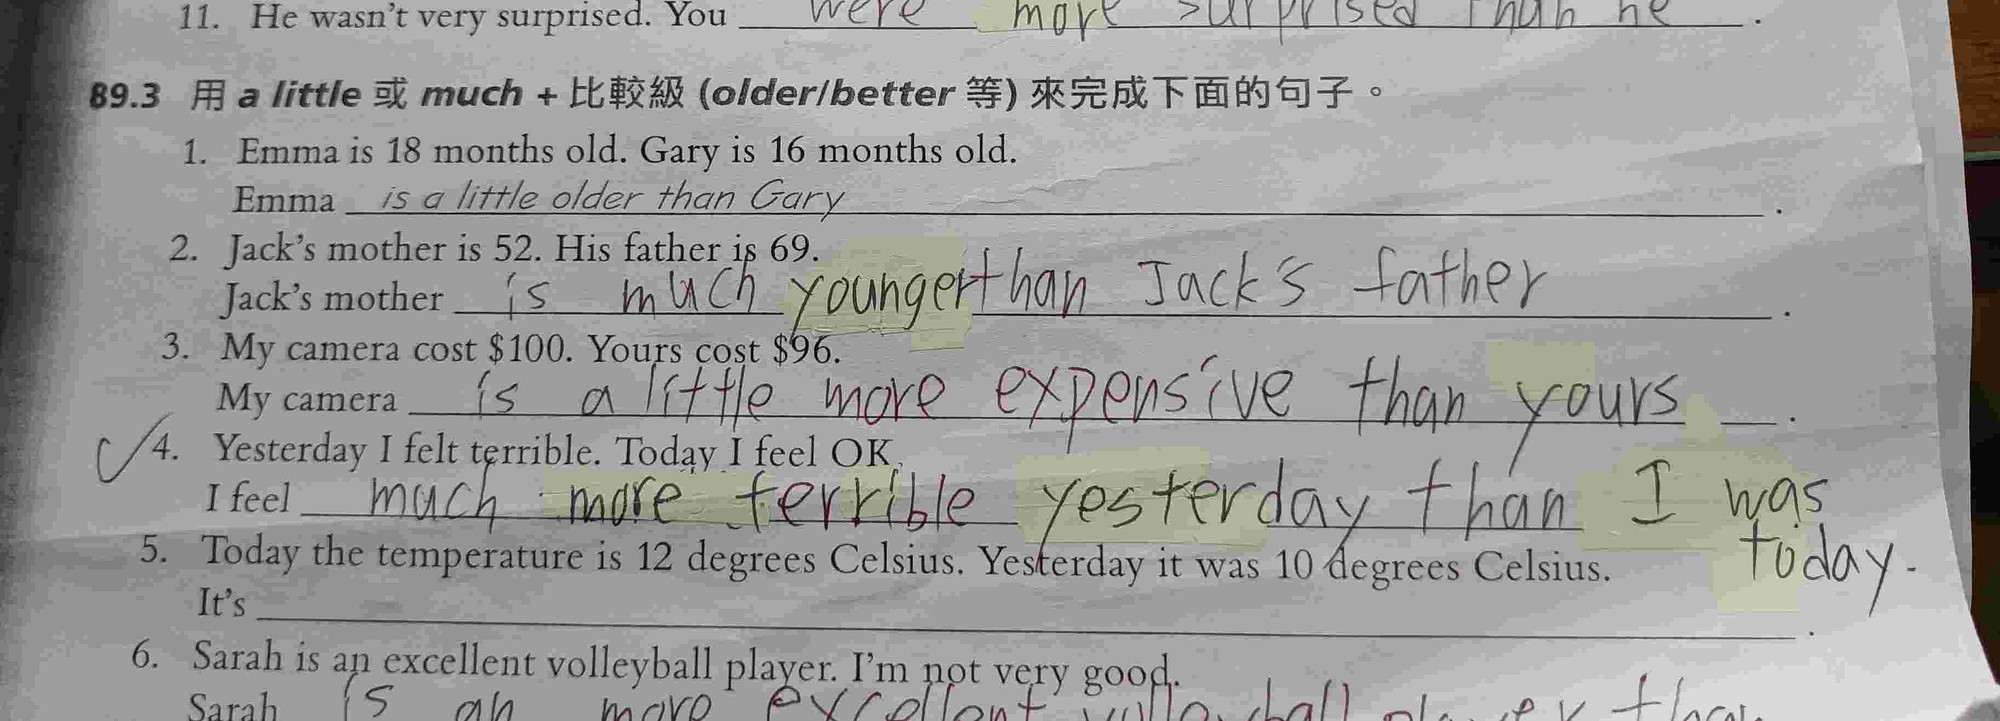 11. He wasn't very surprised. You were more surprised than he.
89.3 用 a little 或 much + 比較級 (older/better 等) 來完成下面的句子。
1. Emma is 18 months old. Gary is 16 months old.
Emma is a little older than Gary.
2. Jack's mother is 52. His father is 69.
Jack's mother is much younger than Jack's father.
3. My camera cost $100. Yours cost $96.
My camera is a little more expensive than yours.
4. Yesterday I felt terrible. Today I feel OK.
I feel much more terrible yesterday than I was
today.
5. Today the temperature is 12 degrees Celsius. Yesterday it was 10 degrees Celsius.
It's .
6. Sarah is an excellent volleyball player. I'm not very good.
Sarah is an more excellent volleyball player than